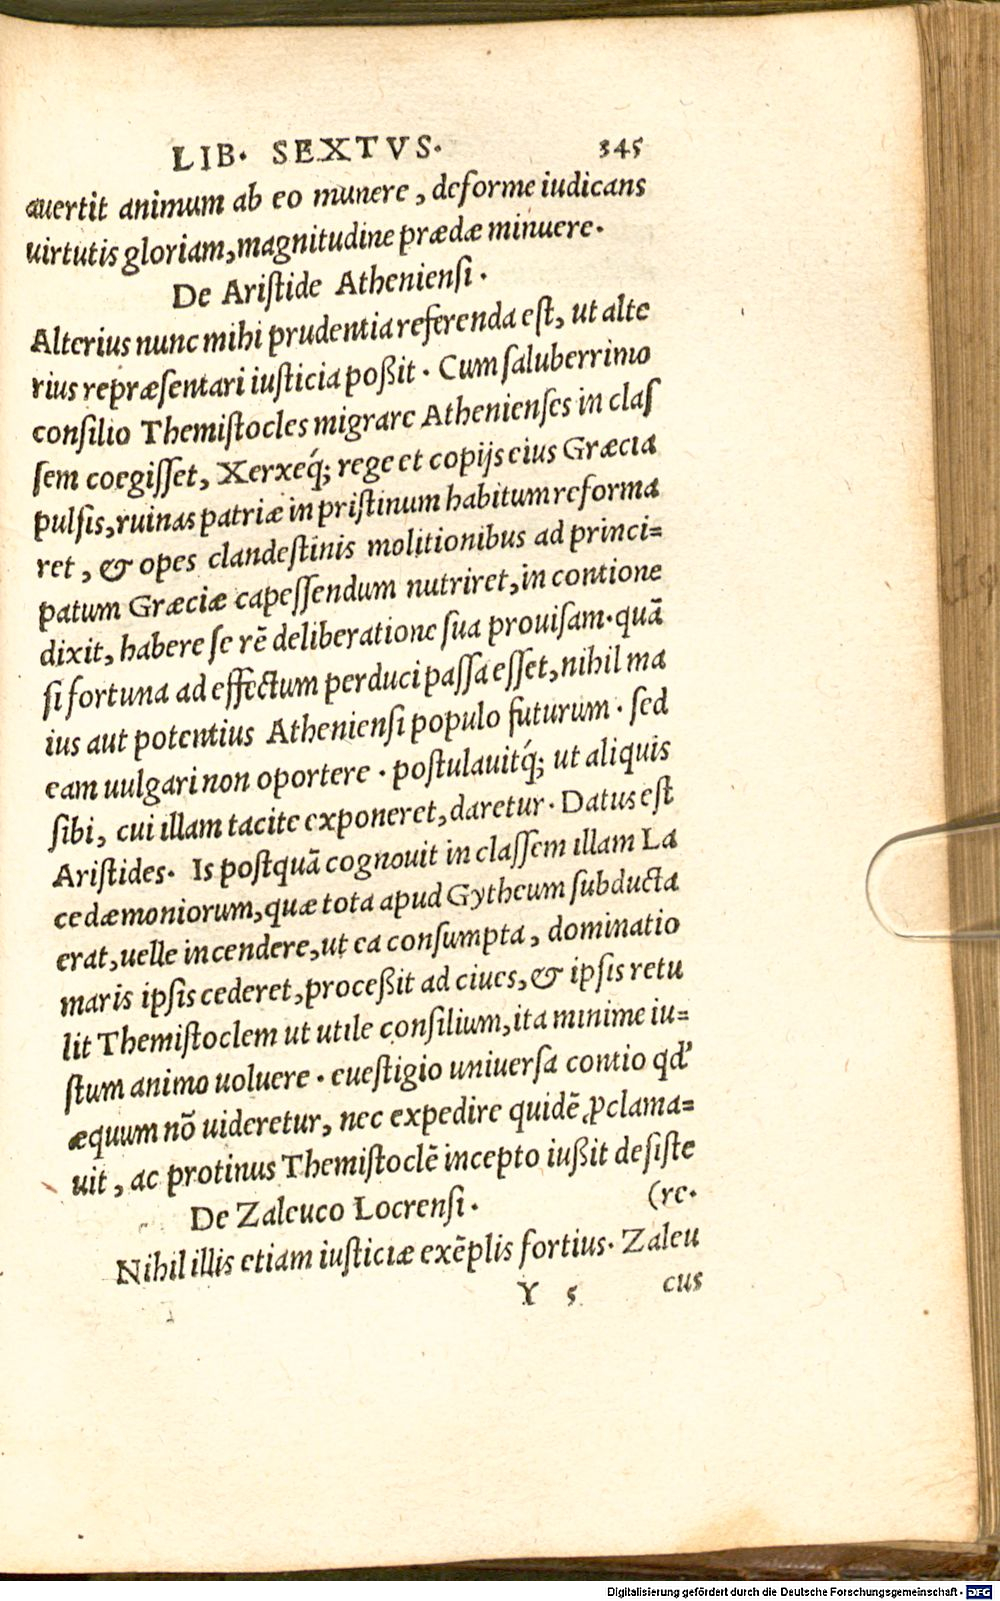 LIB. SEXTVS. 345
auertit animum ab eo munere, deforme iudicans
uirtutis gloriam, magnitudine prædæ minuere.
De Ariſtide Athenienſi.
Alterius nunc mihi prudentia referenda eſt, ut alte
rius repræſentari iuſticia poßit. Cum ſaluberrimo
conſilio Themiſtocles migrare Athenienſes in claſ
ſem coegiſſet, Xerxeq́; rege et copijs eius Græcia
pulſis, ruinas patriæ in priſtinum habitum reforma
ret, & opes clandeſtinis molitionibus ad princi=
patum Græciæ capeſſendum nutriret, in contione
dixit, habere ſe rē deliberatione ſua prouiſam. quā
ſi fortuna ad effectum perduci paſſa eſſet, nihil ma
ius aut potentius Athenienſi populo futurum. ſed
eam uulgari non oportere. poſtulauitq́; ut aliquis
ſibi, cui illam tacite exponeret, daretur. Datus eſt
Ariſtides. Is poſtquā cognouit in claſſem illam La
cedæmoniorum, quæ tota apud Gytheum ſubducta
erat, uelle incendere, ut ea conſumpta, dominatio
maris ipſis cederet, proceßit ad ciues, & ipſis retu
lit Themiſtoclem ut utile conſilium, ita minime iu=
ſtum animo uoluere. eueſtigio uniuerſa contio qd'
æquum nō uideretur, nec expedire quidē ꝓclama=
uit, ac protinus Themiſtoclē incepto iußit deſiſte
De Zaleuco Locrenſi. (re.
Nihil illis etiam iuſticiæ exēplis fortius. Zaleu
Y 5 cus
Digitalisierung gefördert durch die Deutsche Forschungsgemeinschaft - DFG